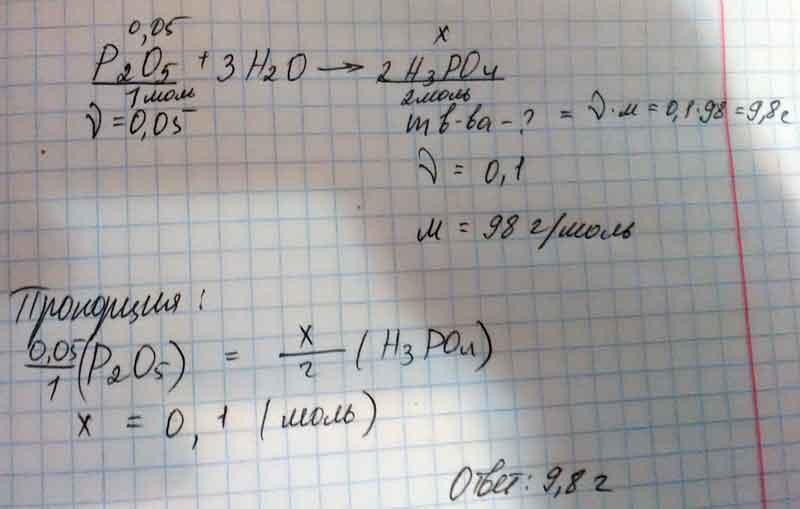 0,05 x
P₂O₅ + 3 H₂O → 2 H₃PO₄
1 моль 2 моль
ν = 0,05 m в-ва - ? = ν · м = 0,1 · 98 = 9,8 г
ν = 0,1
м = 98 г/моль
Пропорция:
0,05/1 (P₂O₅) = x/2 (H₃PO₄)
x = 0,1 (моль)
Ответ: 9,8 г